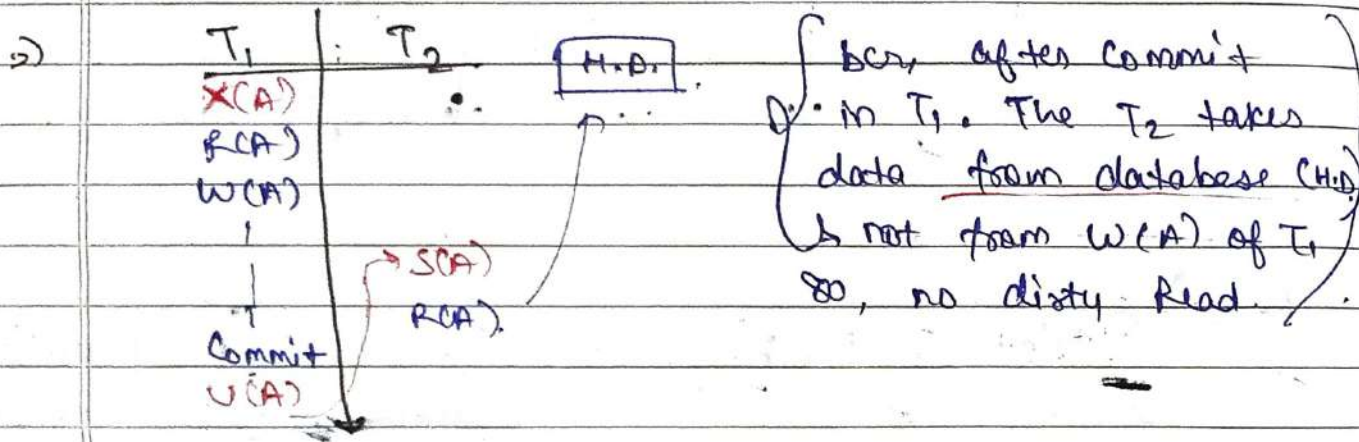 2)
T₁ : T₂
X(A)
R(A)
W(A)
S(A)
R(A).
Commit
U(A)
H.D.
bcz, after Commit
in T₁. The T₂ takes
data from database (H.D)
& not from W(A) of T₁
so, no dirty Read.